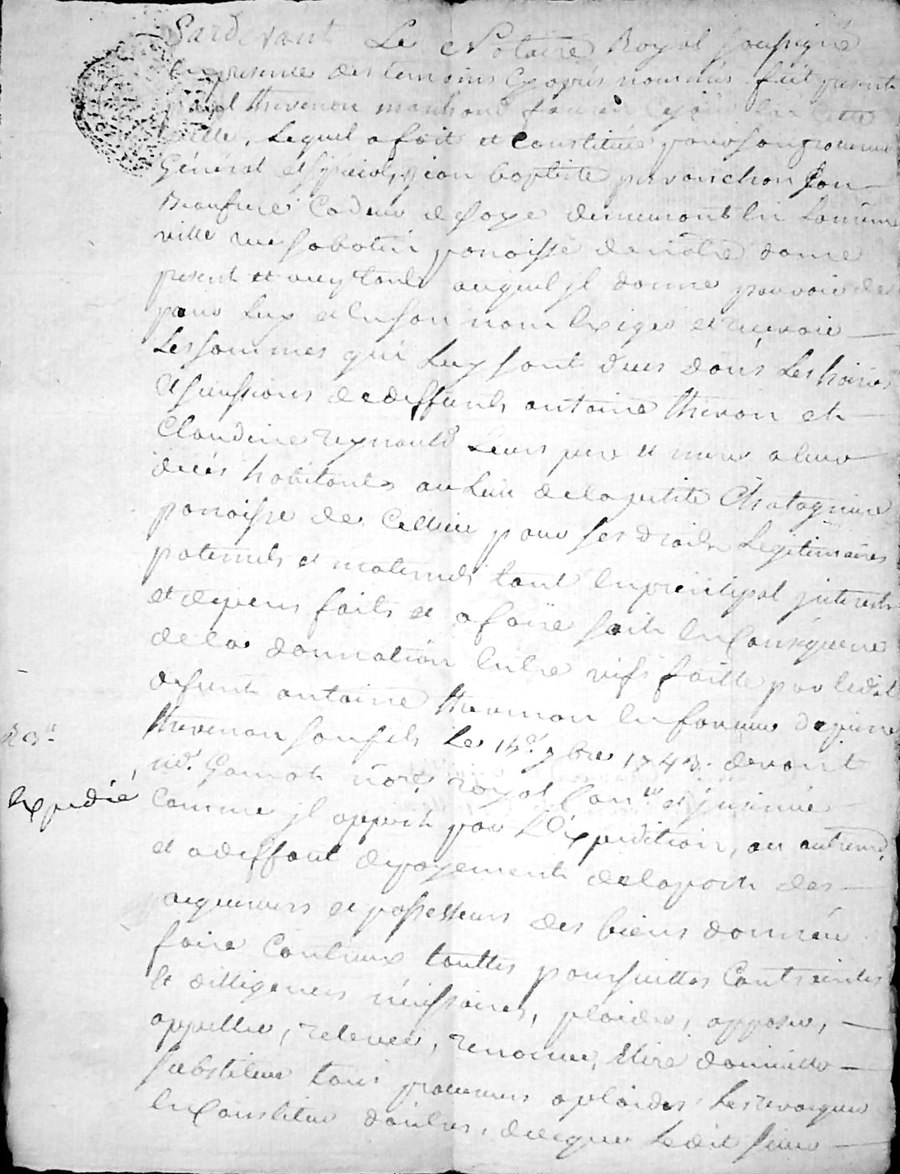 Pardevant Le Notaire Royal soussigné
En presence des temoins cy apres nommés fut present
thevenon marchand en cette
ville, Lequel a fait et constitué pour son procureur
Général et spécial, jean baptiste pravonchon son
Beaufrere Cadeur de soye demeurant En La même
ville rue sabotin paroisse de nôtre dame
present et acceptant auquel jl donne pouvoir de
pour Luy et En son nom Exiger et recevoir
Les sommes qui Luy sont dues dans Les hoiries
& successions de deffunts antoine thevenon et
Claudine reynaud Leurs pere et mere a leur
décés habitants au Lieu de la petite Chatagniere
paroisse de Cellieu pour ses droits Legitimaires
paternels et maternels tant En principal jnterets
et depens faits et a faire, sait En Conséquence
de la donnation Entre vifs faitte par ledit
defunt antoine thevenon En faveur de pierre
thevenon son fils Le 14e. 9bre 1743. devant
me. Gamot notre. royal Con.lé et jnsinuée
Comme jl appert par L'Expedition, ou autrement,
et a deffaut de payement de la part des
acquereurs et possesseurs des biens donnés
faire Contr'eux touttes poursuittes Contraintes
et dilligences nécéssaires, plaider, opposer,
appeller, relever, renoncer, Elire domicille
substituer tous procureurs a plaides Les revoquer
En Constituer d'autres, de ce que Ledit sieur
Expedié